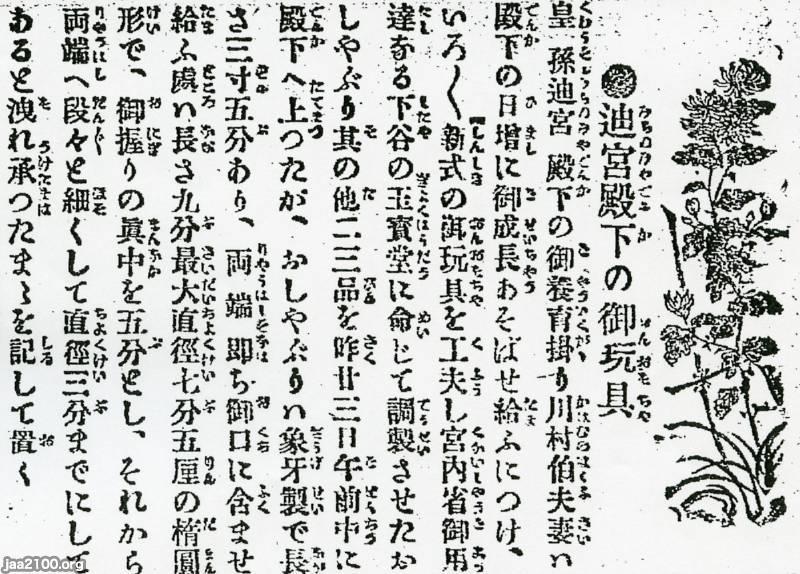 ●迪宮殿下の御玩具
皇孫迪宮殿下の御養育掛り川村伯夫妻ハ
殿下の日增に御成長あそばせ給ふにつけ、
いろ〱新式の御玩具を工夫し宮內省御用
達なる下谷の玉寶堂に命じて調製させたお
しやぶり其の他二三品を昨廿三日午前中に
殿下へ上つたが、おしやぶりハ象牙製で長
さ三寸五分あり、両端卽ち御口に含ませ
給ふ處ハ長さ九分最大直徑七分五厘の楕圓
形で、御握りの眞中を五分とし、それから
両端へ段々と細くして直徑三分までにして
あると洩れ承つたまゝを記して置く
jaa2100.org